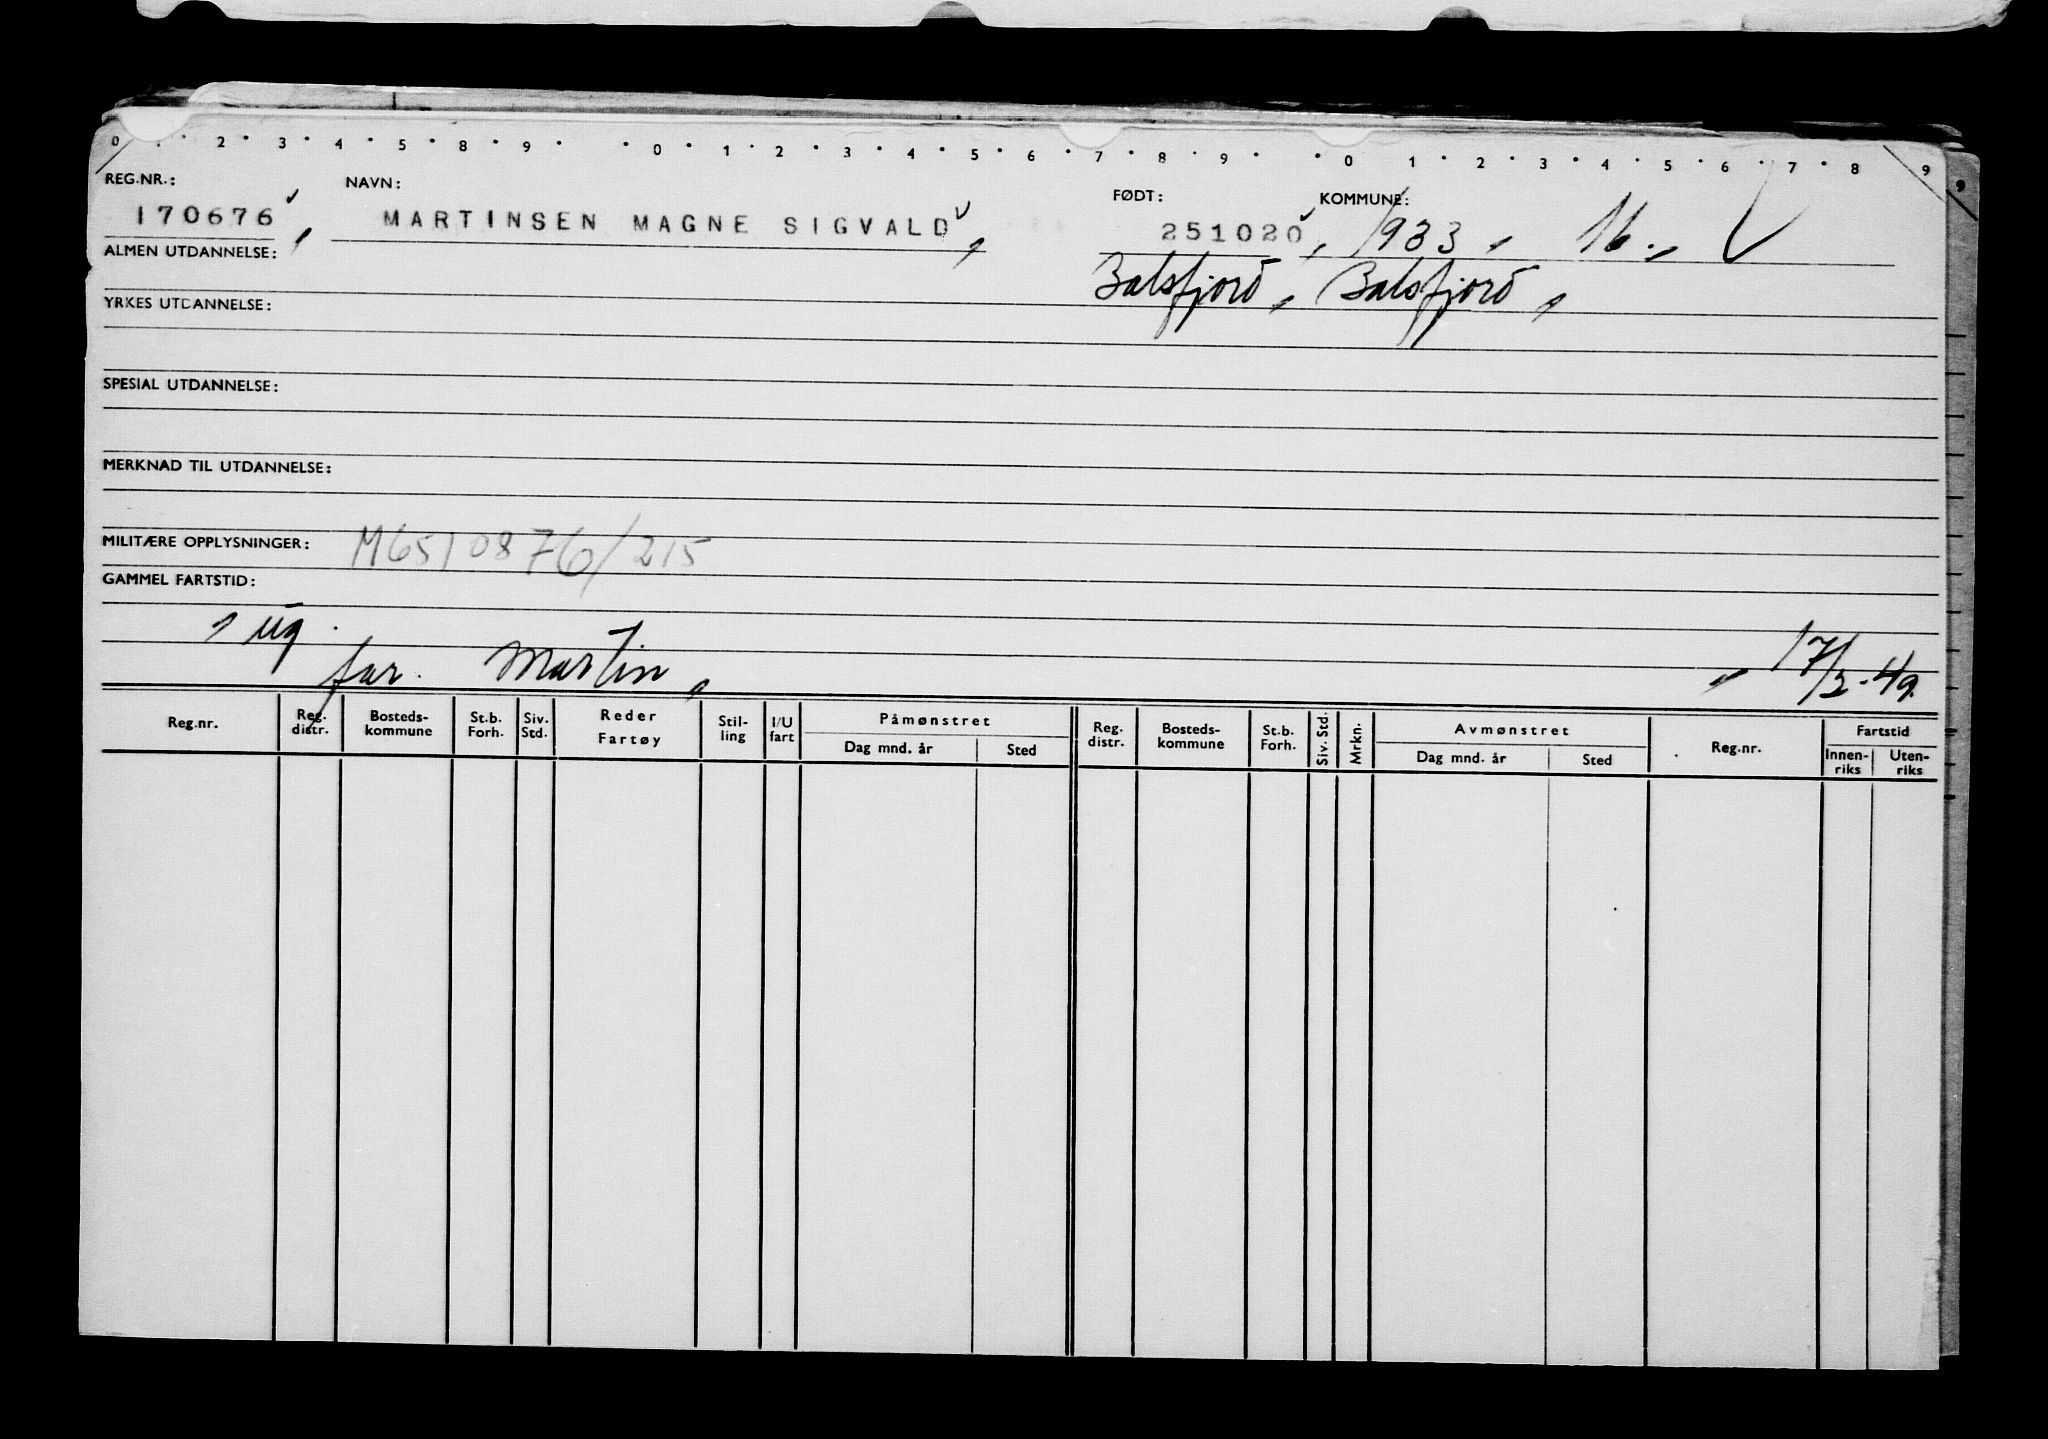 0 . 2 3 4 5 8 9 0 1 2 3 4 5 6 7 8 9 0 1 2 3 4 5 6 7 8 9
REG.NR.: NAVN: FØDT: KOMMUNE:
170676 MARTINSEN MAGNE SIGVALD 251020 1933 16.
ALMEN UTDANNELSE: Balsfjord, Balsfjord,
YRKES UTDANNELSE:
SPESIAL UTDANNELSE:
MERKNAD TIL UTDANNELSE:
MILITÆRE OPPLYSNINGER: M6510876/215
GAMMEL FARTSTID:
ug.
far. Martin, 17/3-49.
Reg.nr. Reg. distr. Bosteds-kommune St.b. Forh. Siv. Std. Reder Fartøy Stil-ling I/U fart Påmønstret Dag mnd. år Sted Reg. distr. Bosteds-kommune St.b. Forh. Siv. Std. Mrkn. Avmønstret Dag mnd. år Sted Reg.nr. Fartstid Innen-riks Uten-riks